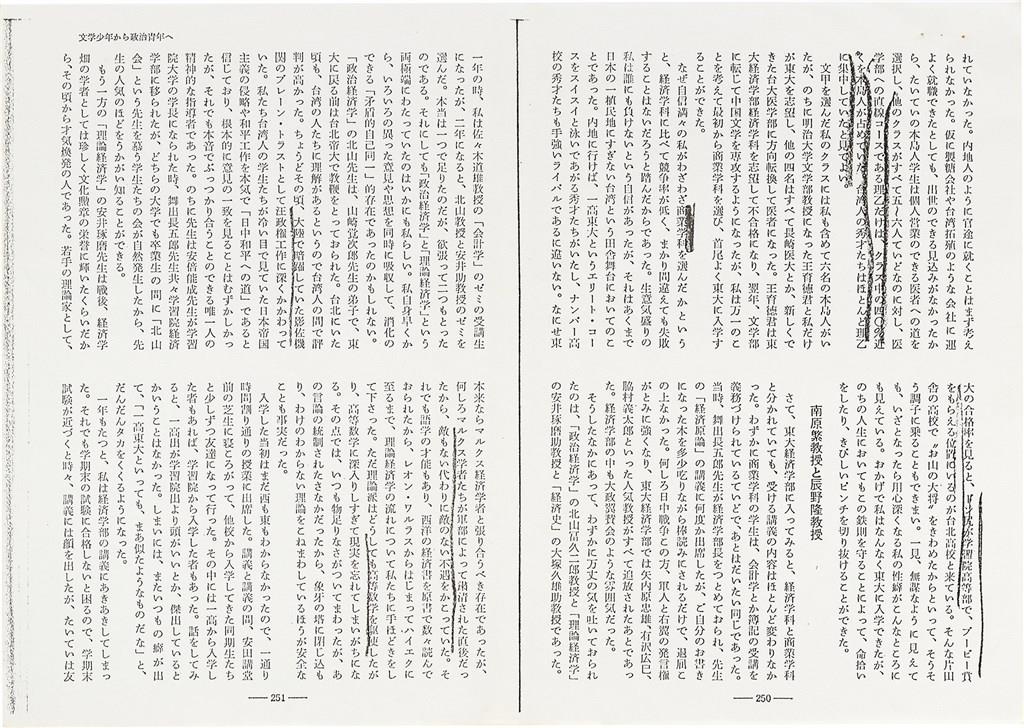 れていなかった。内地人のように官途に就くことはまず考え
よく就職できたとしても、出世のできる見込みがなかったか
ら、たいていの本島人学生は個人営業のできる医者への道を
選択し、他のクラスがすべて五〜六人ていどなのに対し、医
学部への直線コースである理乙だけは、クラス中の四〇名近
くを本島人が占めていた。台湾人の秀才たちはほとんど理乙
に集中していたと見てよい。
文甲を選んだ私のクラスには私も含めて六名の本島人がい
たが、のちに明治大学文学部教授となった王育徳君と私だけ
が東大を志望し、他の四名はすべて長崎医大とか、新しくで
きた台大医学部に方向転換して医者になった。王育徳君は東
大経済学部経済学科を志望して不合格になり、翌年、文学部
に転じて中国文学を専攻するようになったが、私は万一のこ
とを考えて最初から商業学科を選び、首尾よく東大に入学す
ることができた。
なぜ自信満々の私がわざわざ商業学科を選んだか という
と、経済学科に比べて競争率が低く、まかり間違えても失敗
することはないだろうと踏んだからであった。生意気盛りの
私は誰にも負けないという自信があったが、それはあくまで
日本の一植民地にすぎない台湾という田舎舞台においてのこ
とであった。内地に行けば、一高東大というエリート・コー
スをスイスイと泳いであがる秀才たちがいたし、ナンバー高
校の秀才たちも手強いライバルであるに違いない。なにせ東
大の合格率を見ると、
学習院高等部で、ブービー賞
をもらえる位置にいるのが台北高校と来ている。そんな片田
舎の高校で〝お山の大将〟をきわめたからといって、そうそ
う調子に乗ることもできまい。一見、無謀なように見えて
も、いざとなったら用心深くなる私の性癖がこんなところに
も見えている。おかげで私はなんなく東大に入学できたが、
のちの人生においてもこの鉄則を守ることによって、命拾い
をしたり、きびしいピンチを切り抜けることができた。
南原繁教授と辰野隆教授
さて、東大経済学部に入ってみると、経済学科と商業学科
と分かれていても、受ける講義の内容はほとんど変わりなか
った。わずかに商業学科の学生は、会計学とか簿記の受講を
義務づけられているていどで、あとはだいたい同じであった。
当時、舞出長五郎先生が経済学部長をつとめておられ、先生
の「経済原論」の講義に何度か出席したが、ご自分のお書き
になった本を多少咤りながら棒読みにされるだけで、退屈こ
の上なかった。何しろ日中戦争この方、軍人と右翼の発言権
がとみに強くなり、東大経済学部では矢内原忠雄、有沢広巳、
脇村義太郎といった人気教授がすべて追放されたあとであっ
て、経済学部の中も大政翼賛会のような雰囲気だった。
そうしたなかにあって、わずかに万丈の気を吐いておられ
たのは、「政治経済学」の北山冨久二郎教授と「理論経済学」
の安井琢磨助教授と「経済史」の大塚久雄助教授であった。
— 250 —
文学少年から政治青年へ
一年の時、私は佐々木道雄教授の「会計学」のゼミの受講生
になったが、二年になると、北山教授と安井助教授のゼミを
選んだ。本当は一つで足りたのだが、欲張って二つもとった
のである。それにしても「政治経済学」と「理論経済学」という
両極端にわたっていたのはいかにも私らしい。私自身早くか
ら、いろいろの異った意見や思想を同時に吸収して、消化の
できる「矛盾的自己同一」的存在であったのかもしれない。
「政治経済学」の北山先生は、山崎覚次郎先生の弟子で、東
大に戻る前は台北帝大で教鞭をとっておられた。台北にいた
頃も、台湾の人たちに理解があるというので台湾人の間で評
判が高かった。ちょうどその頃、大陸で暗躍していた影佐機
関のブレーン・トラストとして汪政権工作に深くかかわって
いた。私たち台湾人の学生たちが冷い目で見ていた日本帝国
主義の侵略や和平工作を本気で「日中和平への道」であると
信じており、根本的に意見の一致を見ることはむずかしかっ
たが、それでも本音でぶつかり合うことのできる唯一人の
精神的な指導者であった。のちに先生は安倍能成先生が学習
院大学の学長になられた時、舞出長五郎先生共々学習院経済
学部に移られたが、どちらの大学でも卒業生の間に「北山
会」という先生を慕う学生たちの会が自然発生したから、先
生の人気のほどをうかがい知ることができる。
もう一方の「理論経済学」の安井琢磨先生は戦後、経済学
畑の学者としては珍しく文化勲章の栄誉に輝いたくらいだか
ら、その頃から才気煥発の人であった。若手の理論家として、
本来ならマルクス経済学者と張り合うべき存在であったが、
何しろマルクス学者たちが軍部によって粛清された直後だっ
たから、敵もない代わりに敵のない不遇をかこっていた。そ
れでも語学の才能もあり、西洋の経済書を原書で数々読んで
おられたから、レオン・ワルラスからはじまってハイエクに
至るまで、理論経済学の流れについて私たちに手ほどきをし
て下さった。ただ理論派はどうしても高等数学を駆使したが
り、高等数学に深入りしすぎて現実を忘れてしまいがちにな
る。その点では、いつも物足りなさがついてまわったが、あ
の言論の統制されたさなかだったから、象牙の塔に閉じ込も
り、わけのわからない理論をこねまわしているほうが安全な
ことも事実だった。
入学した当初はまだ西も東もわからなかったので、一通り
時間割り通りの授業に出席した。講義と講義の間、安田講堂
前の芝生に寝ころがって、他校から入学してきた同期生たち
と少しずつ友達になって行った。その中には一高から入学し
た者もあれば、学習院から入学した者もあった。話をしてみ
ると、一高出が学習院出より頭がいいとか、傑出していると
かいうことはなかった。しまいには、またいつもの癖が出
て、「一高東大といっても、まああんなようなものだな」と、
だんだんタカをくくるようになった。
一年もたつと、私は経済学部の講義にあきあきしてしまっ
た。それでも学期末の試験に合格しないと困るので、学期末
試験が近づくと時々、講義には顔を出したが、たいていは友
— 251 —